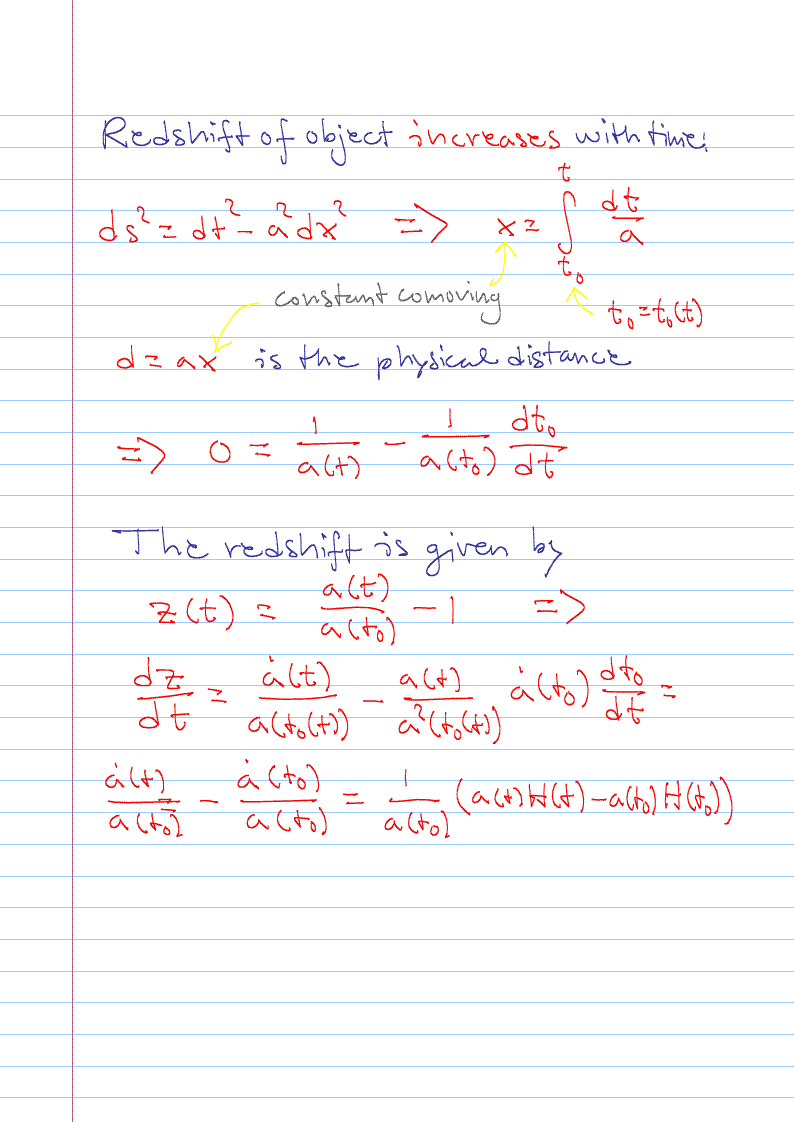 Redshift of object increases with time:
ds² = dt² - a²dx² => x = ∫_{t₀}^{t} dt/a
constant comoving
t₀ = t₀(t)
d = ax is the physical distance
=> 0 = 1/a(t) - 1/a(t₀) dt₀/dt
The redshift is given by
z(t) = a(t)/a(t₀) - 1 =>
dz/dt = ȧ(t)/a(t₀(t)) - a(t)/a²(t₀(t)) ȧ(t₀) dt₀/dt =
ȧ(t)/a(t₀) - ȧ(t₀)/a(t₀) = 1/a(t₀) (a(t)H(t) - a(t₀)H(t₀))